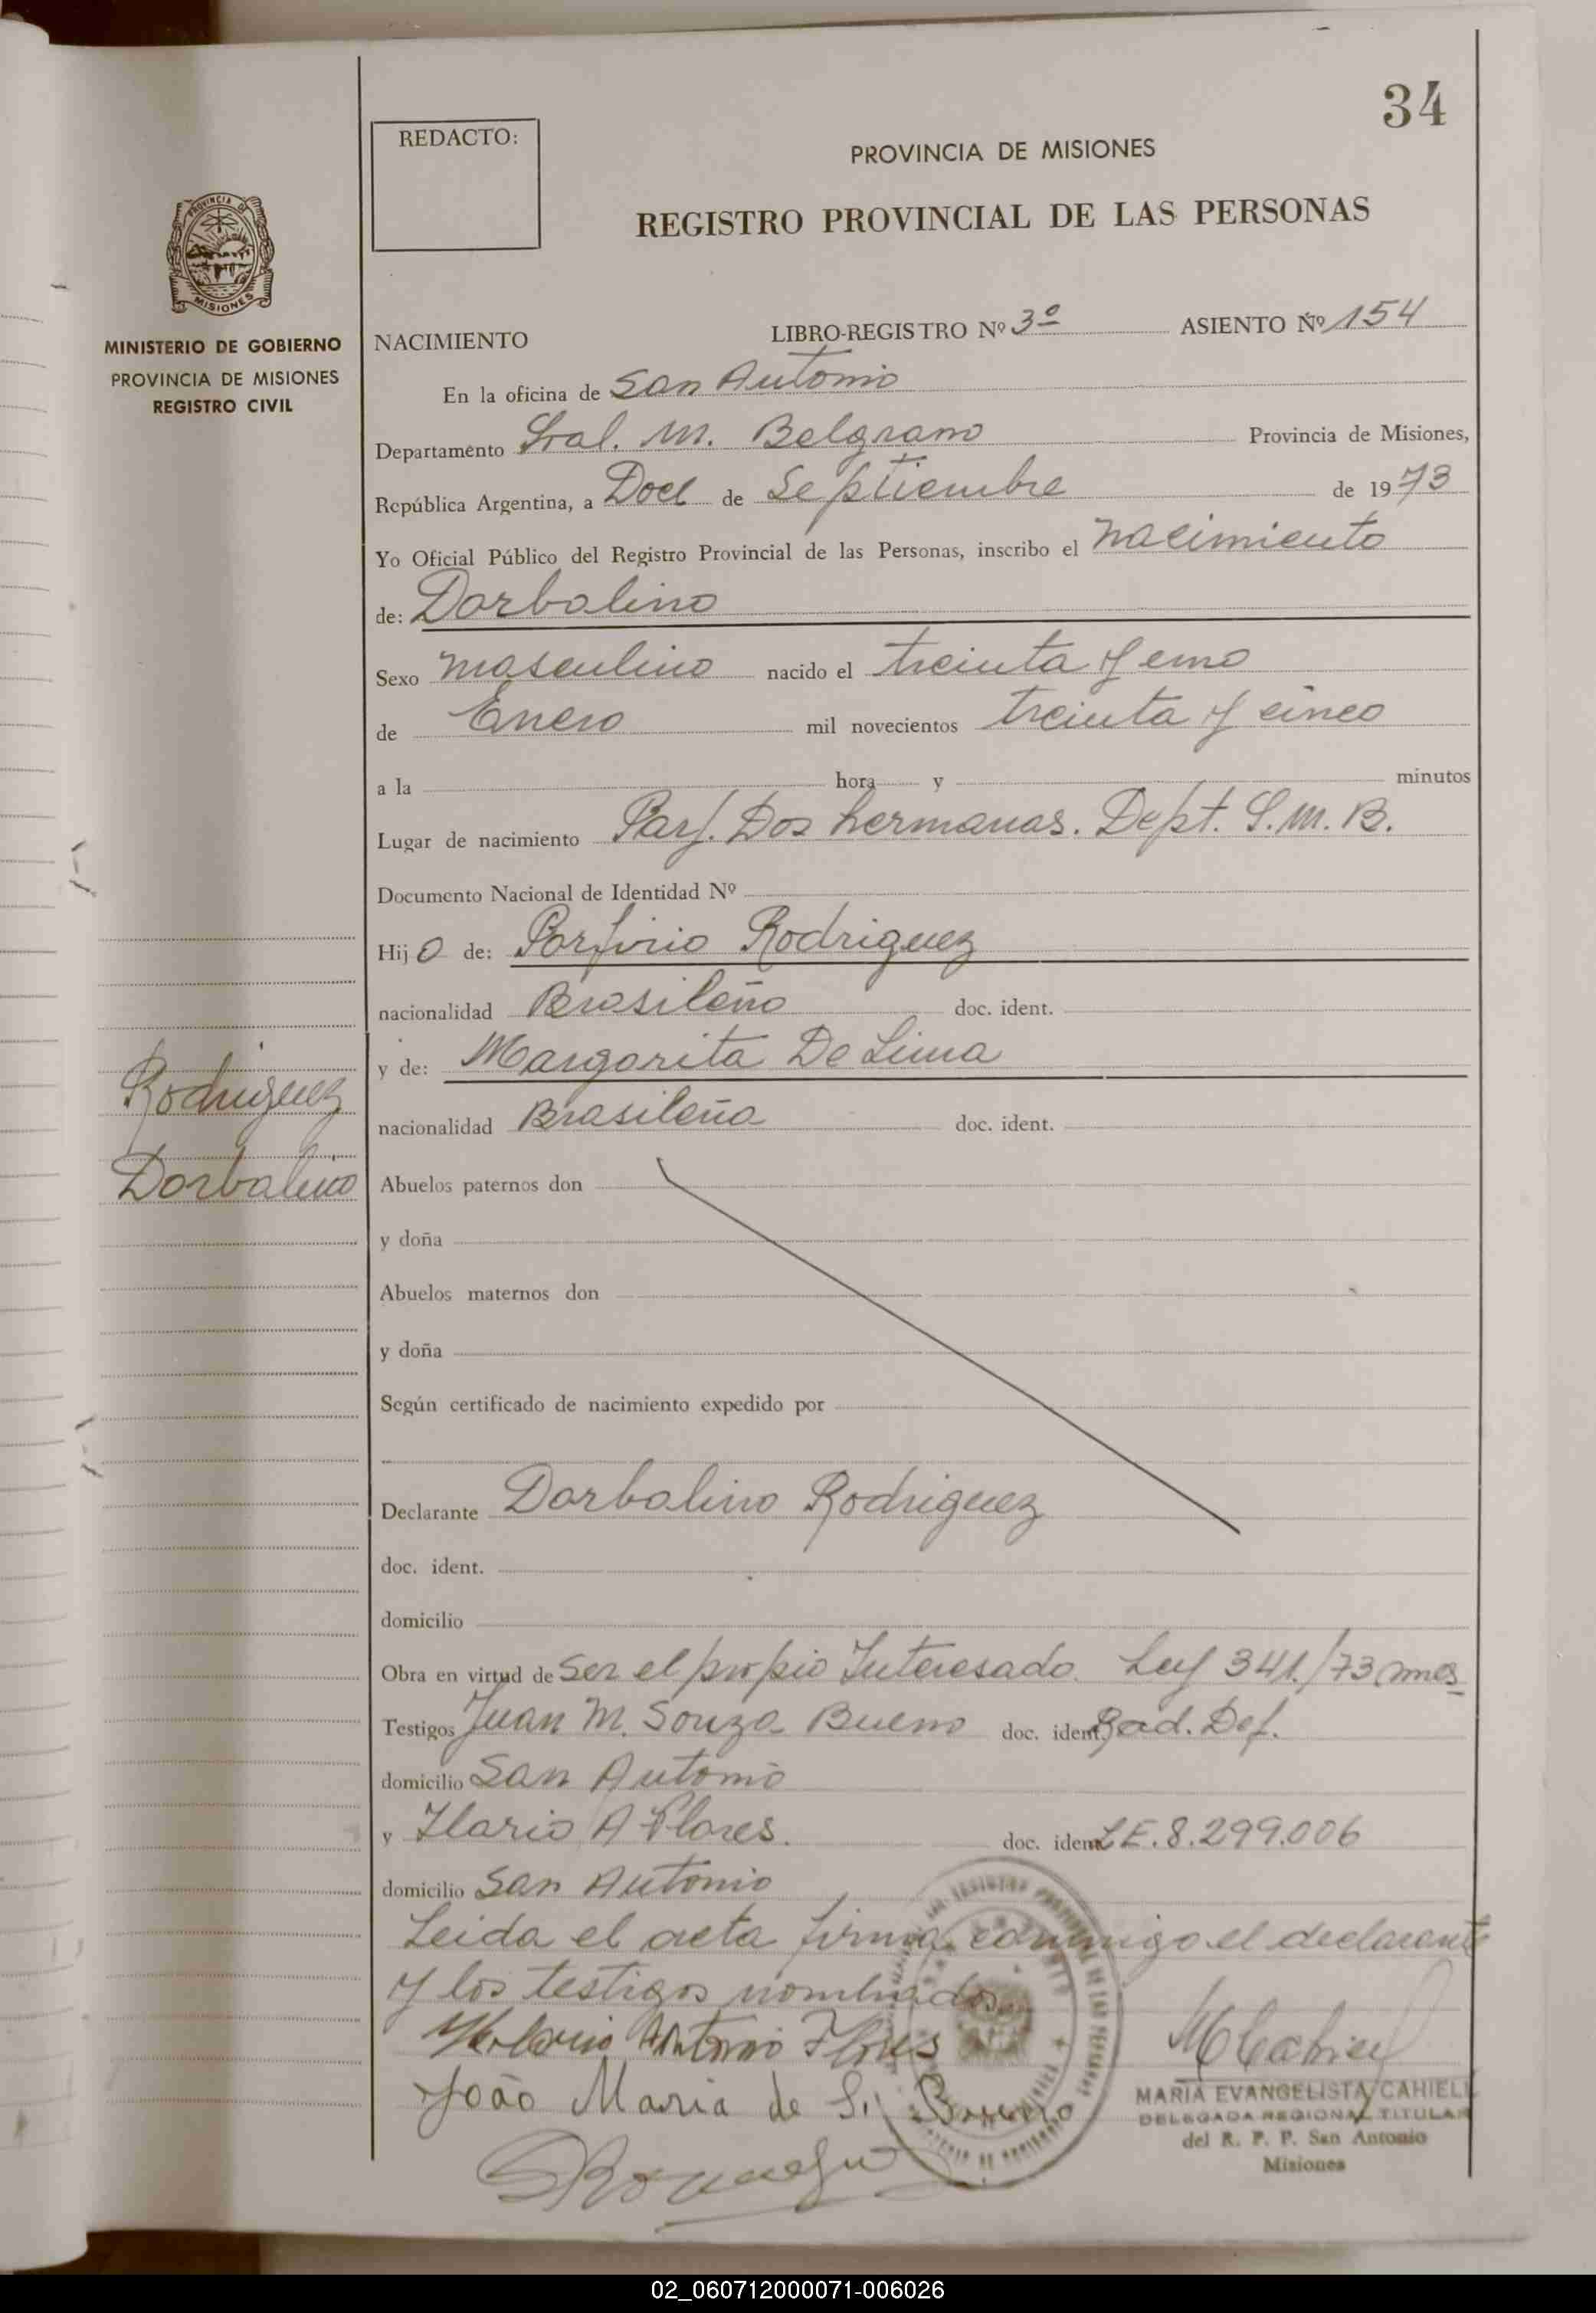 34
REDACTO:
PROVINCIA DE MISIONES
REGISTRO PROVINCIAL DE LAS PERSONAS
MINISTERIO DE GOBIERNO
PROVINCIA DE MISIONES
REGISTRO CIVIL
NACIMIENTO LIBRO-REGISTRO Nº 3º ASIENTO Nº 154
En la oficina de San Antonio
Departamento Gral. M. Belgrano Provincia de Misiones,
República Argentina, a Doce de Septiembre de 1973
Yo Oficial Público del Registro Provincial de las Personas, inscribo el nacimiento
de: Dorbalino
Sexo masculino nacido el treinta y uno
de Enero mil novecientos treinta y cinco
a la hora y minutos
Lugar de nacimiento Parj. Dos hermanas. Dept. G.M.B.
Documento Nacional de Identidad Nº
Hijo de: Porfirio Rodriguez
nacionalidad Brasileño doc. ident.
y de: Margarita De Lima
nacionalidad Brasileña doc. ident.
Rodriguez
Dorbalino
Abuelos paternos don
y doña
Abuelos maternos don
y doña
Según certificado de nacimiento expedido por
Declarante Dorbalino Rodriguez
doc. ident.
domicilio
Obra en virtud de Ser el propio Interesado. Ley 341./73
Testigos Juan M. Souza Bueno doc. ident. Def.
domicilio San Antonio
y Ilario A Flores. doc. ident. L E. 8.299.006
domicilio San Antonio
Leida el acta firma conmigo el declarante
y los testigos nombrados
Antonio Flores
João Maria de S. Bueno
MARIA EVANGELISTA CAHIEL
DELEGADA REGIONAL TITULAR
del R. P. P. San Antonio
Misiones
02_060712000071-006026